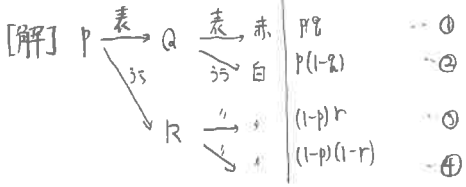 [解] P 表 Q 表 赤 pq ... ①
うら うら 白 p(1-q) ... ②
R 〃 〃 (1-p)r ... ③
〃 〃 (1-p)(1-r) ... ④